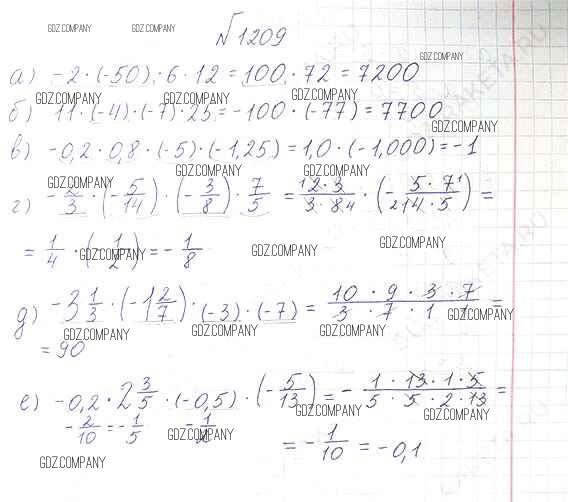 GDZ.COMPANY GDZ.COMPANY
№1209
GDZ.COMPANY
а) -2 · (-50) · 6 · 12 = 100 · 72 = 7200
GDZ.COMPANY GDZ.COMPANY GDZ.COMPANY
б) 11 · (-4) · (-7) · 25 = -100 · (-77) = 7700
GDZ.COMPANY
в) -0,2 · 0,8 · (-5) · (-1,25) = 1,0 · (-1,000) = -1
GDZ.COMPANY GDZ.COMPANY GDZ.COMPANY
г) -2/3 · (-5/14) · (-3/8) · 7/5 = (2 · 3)/(3 · 8) · (-(5 · 7)/(14 · 5)) =
= 1/4 · (-1/2) = -1/8
GDZ.COMPANY GDZ.COMPANY GDZ.COMPANY
д) -3 1/3 · (-1 2/7) · (-3) · (-7) = (10 · 9 · 3 · 7)/(3 · 7 · 1 · 1) =
GDZ.COMPANY GDZ.COMPANY GDZ.COMPANY GDZ.COMPANY
= 90
е) -0,2 · 2 3/5 · (-0,5) · (-5/13) = -(1 · 13 · 1 · 5)/(5 · 5 · 2 · 13) =
GDZ.COMPANY GDZ.COMPANY GDZ.COMPANY
-2/10 = -1/5 -1/2
GDZ.COMPANY
= -1/10 = -0,1
GDZ.COMPANY